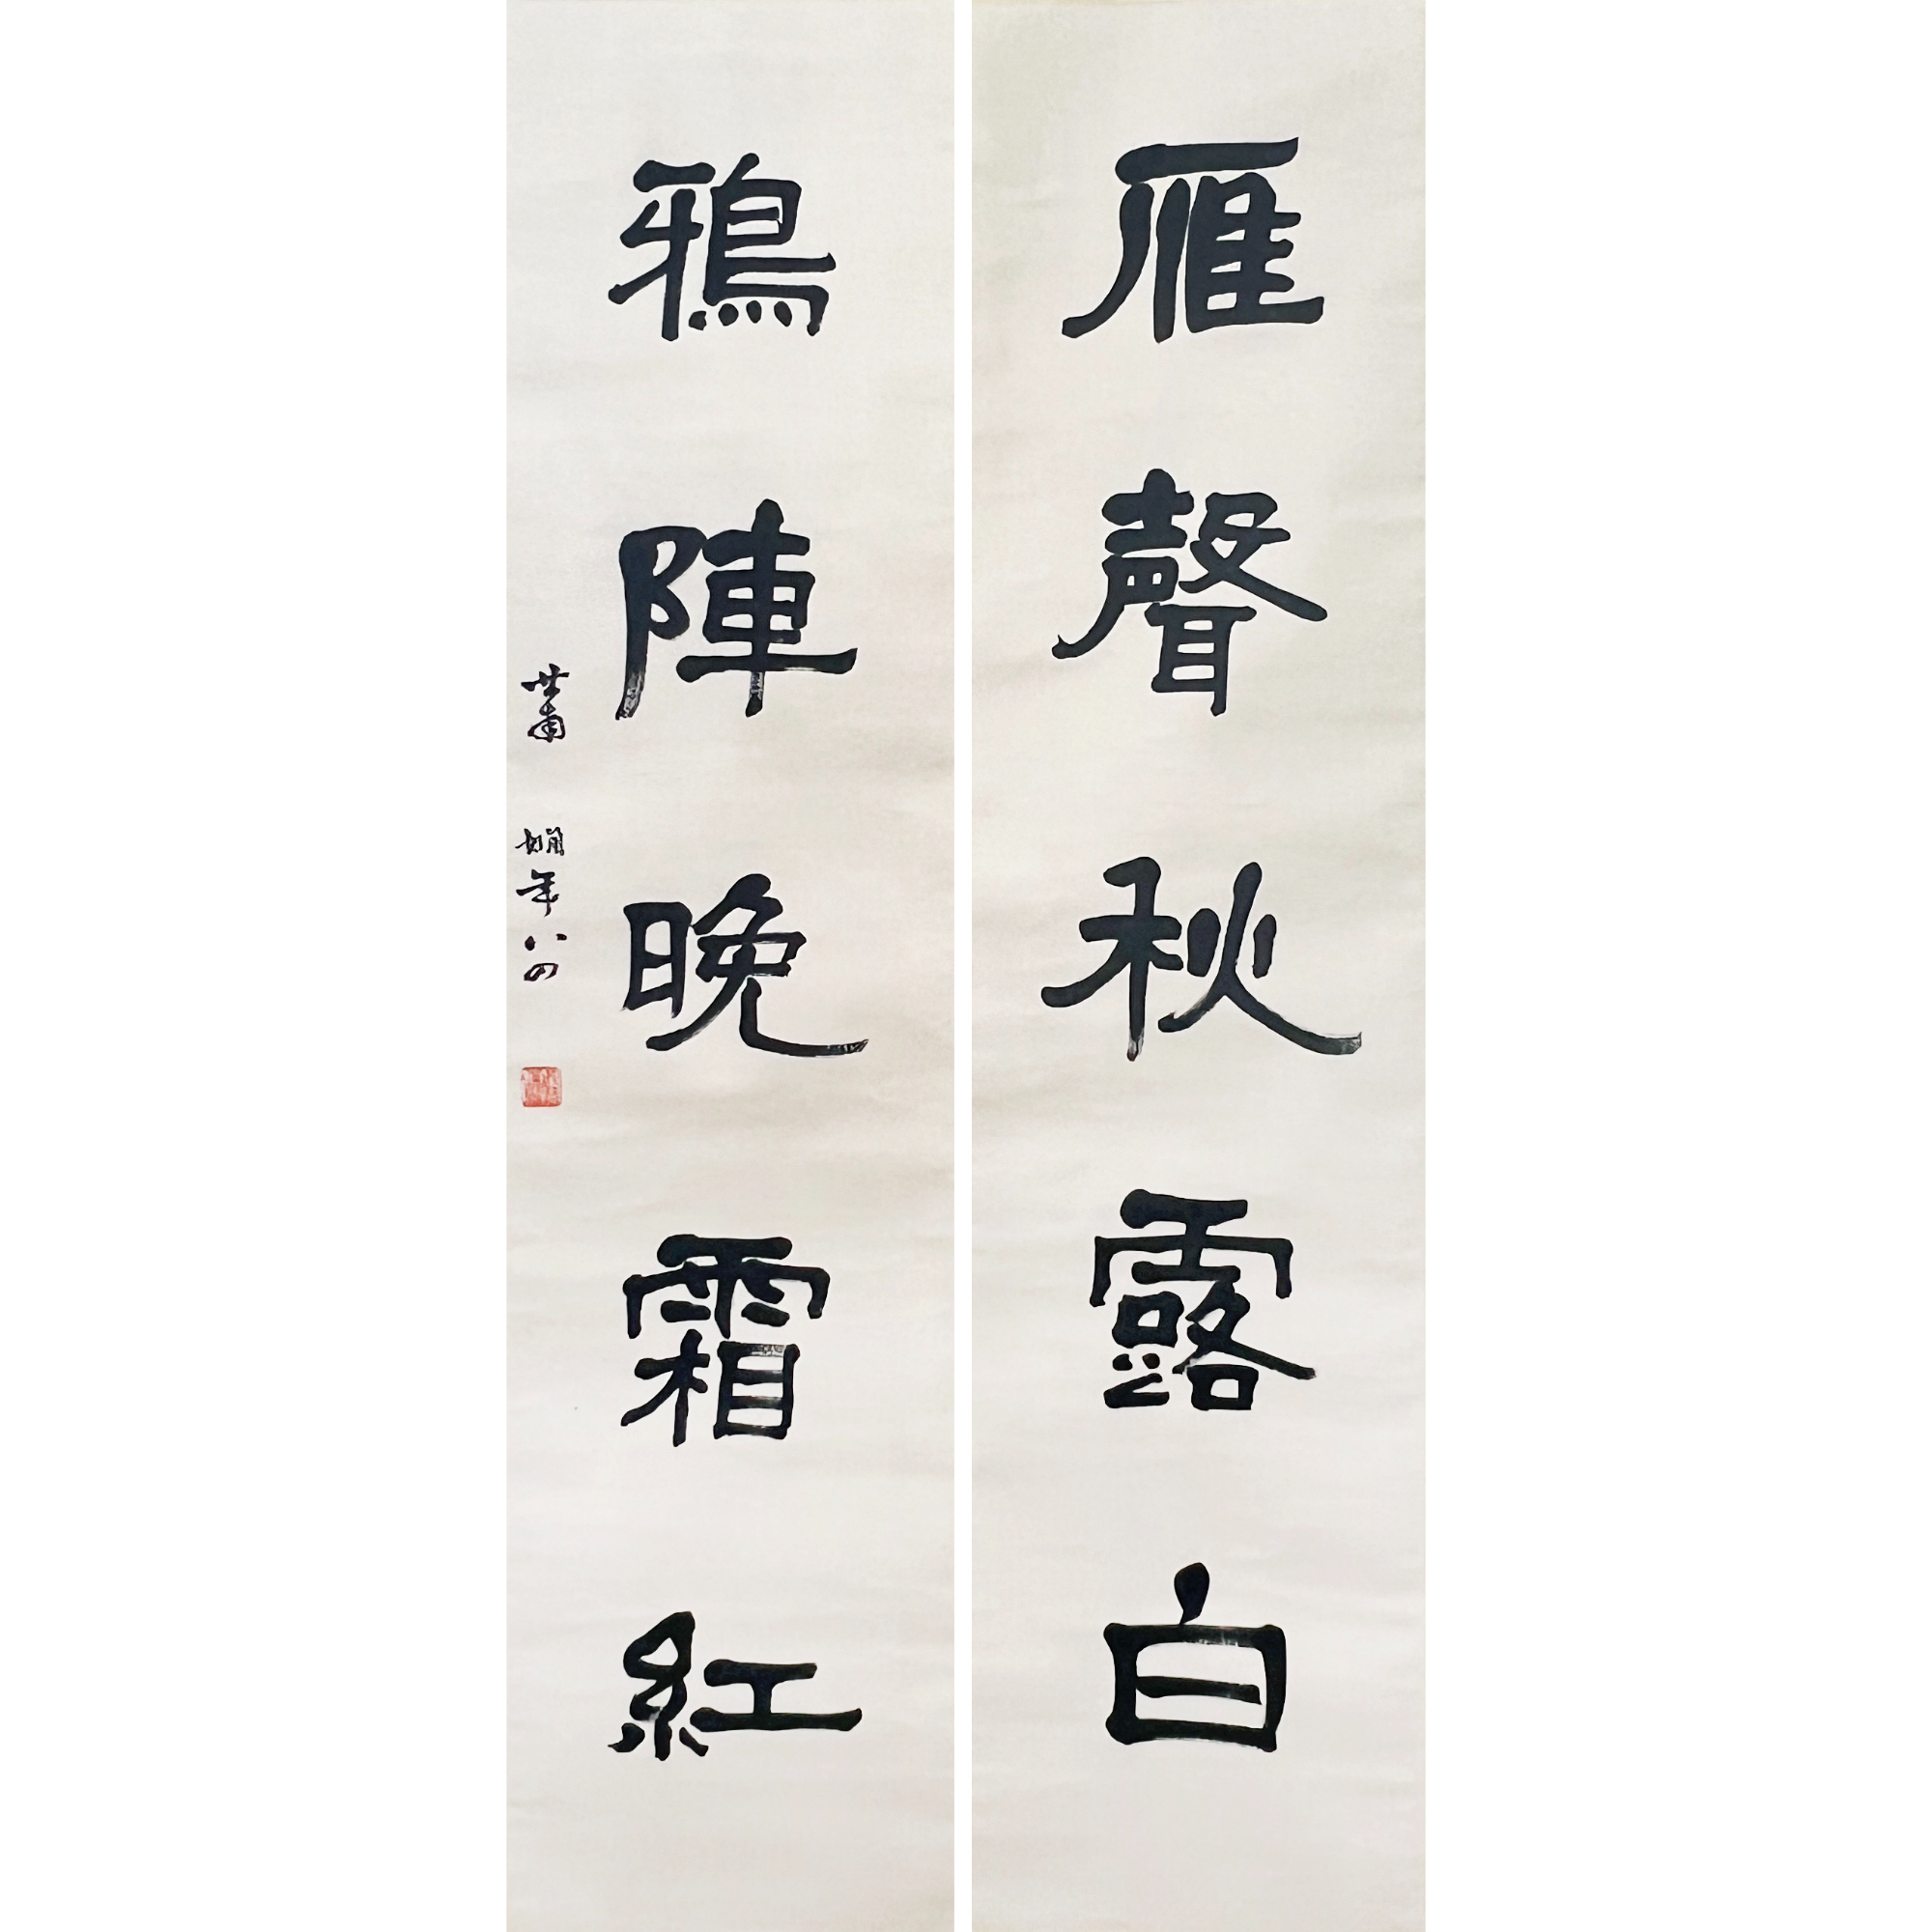 雁聲秋露白
鴉陣晚霜紅
蕭嫻年八四